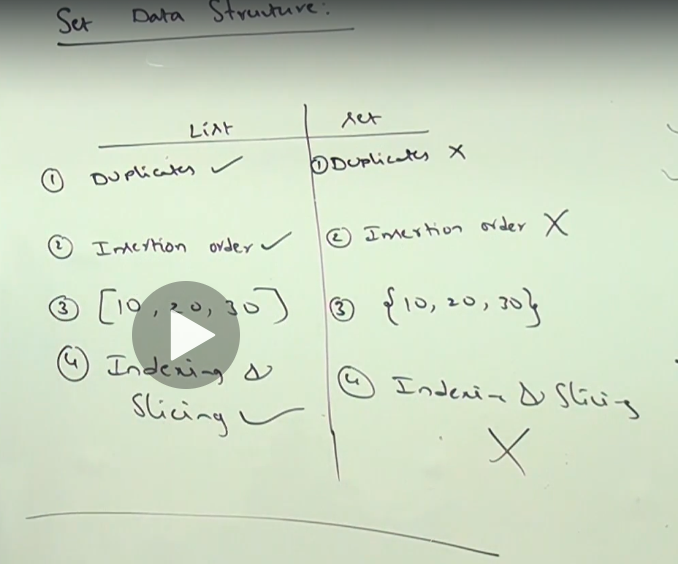 Set Data Structure:
List
Set
① Duplicates ✓
① Duplicates X
② Insertion order ✓
② Insertion order X
③ [10, 20, 30]
③ {10, 20, 30}
④ Indexing &
Slicing ✓
④ Indexin & Slicing
X